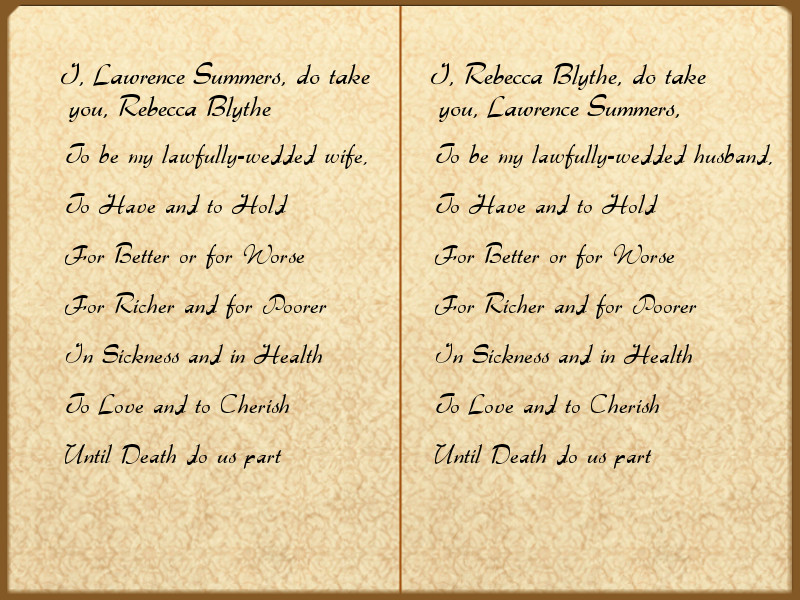 I, Lawrence Summers, do take
you, Rebecca Blythe
To be my lawfully-wedded wife,
To Have and to Hold
For Better or for Worse
For Richer and for Poorer
In Sickness and in Health
To Love and to Cherish
Until Death do us part
I, Rebecca Blythe, do take
you, Lawrence Summers,
To be my lawfully-wedded husband,
To Have and to Hold
For Better or for Worse
For Richer and for Poorer
In Sickness and in Health
To Love and to Cherish
Until Death do us part